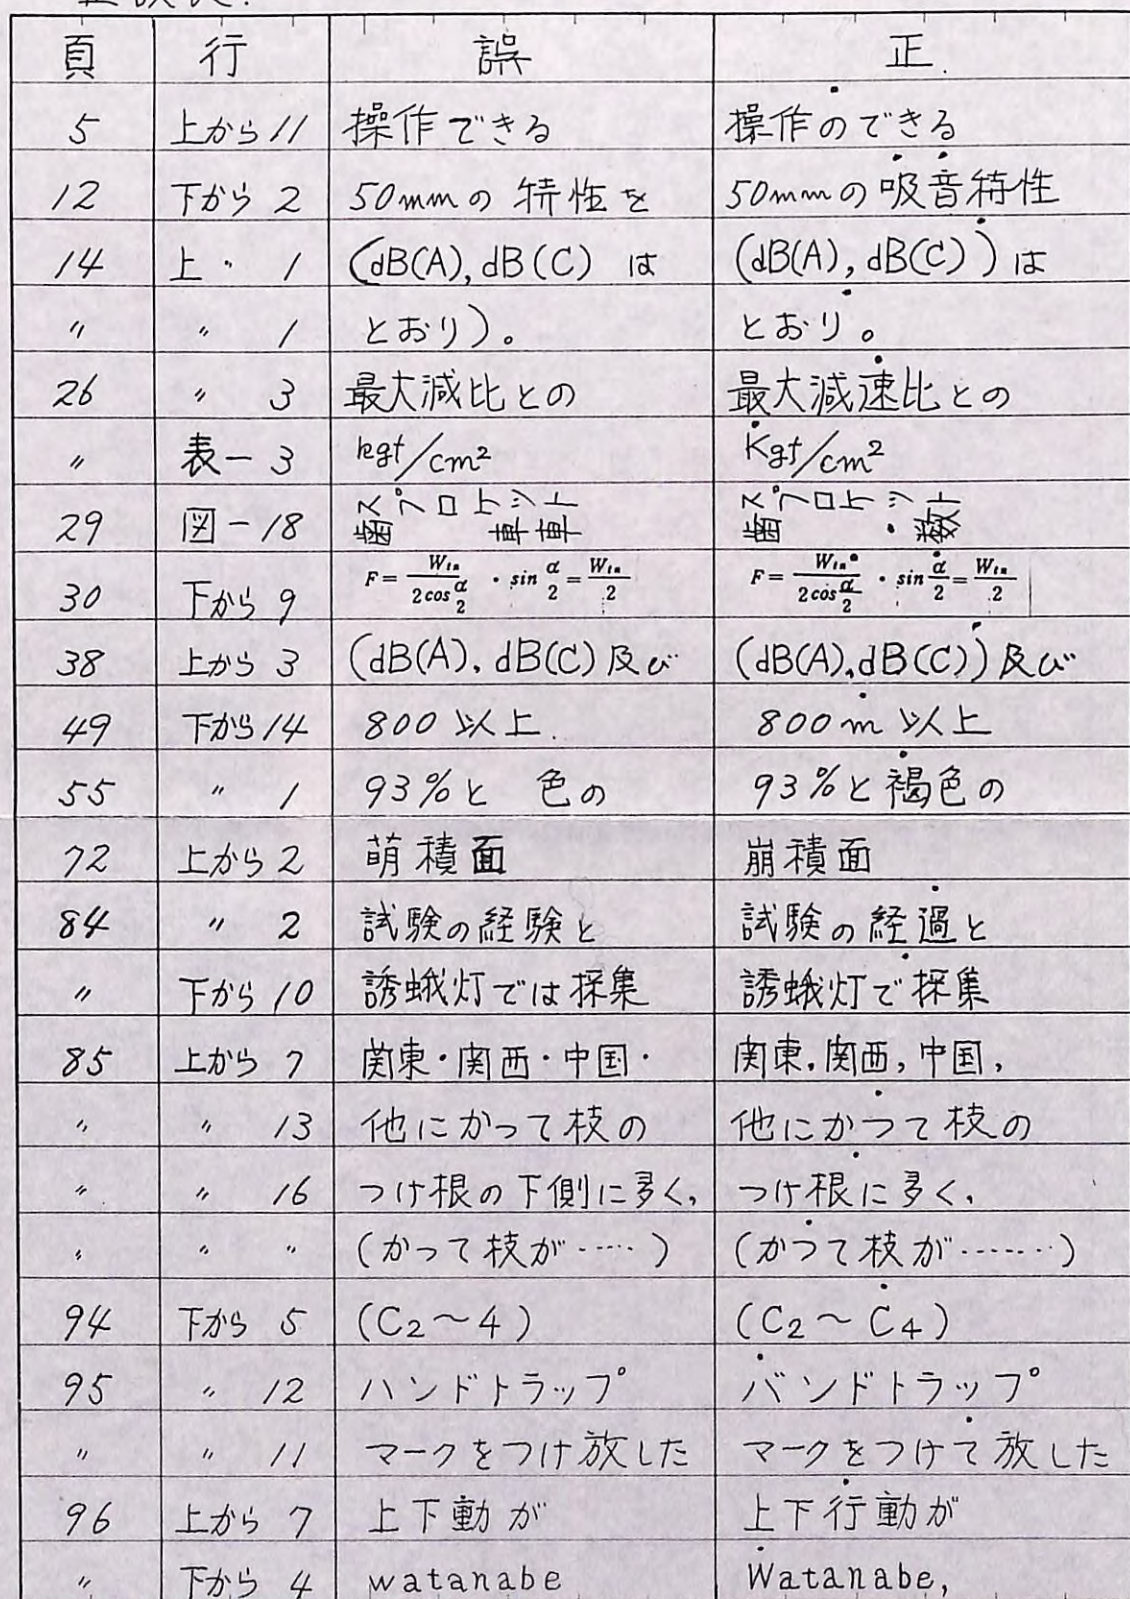 正誤表.
頁 行 誤 正.
5 上から11 操作できる 操作のできる
12 下から 2 50mmの 特性を 50mmの吸音特性
14 上 〃 1 (dB(A), dB(C) は (dB(A), dB(C))は
〃 〃 1 とおり)。 とおり。
26 〃 3 最大減比との 最大減速比との
〃 表-3 kgf/cm² Kgf/cm²
29 図-18 スプロケット歯車車 スプロケット歯・数
30 下から 9 F=Wtn/2cosα/2・sinα/2=Wtn/2 F=Wtn/2cosα/2・sinα/2=Wtn/2
38 上から 3 (dB(A), dB(C)及び (dB(A), dB(C))及び
49 下から14 800 以上. 800m以上
55 〃 1 93%と 色の 93%と褐色の
72 上から 2 萌積面 崩積面
84 〃 2 試験の経験と 試験の経過と
〃 下から10 誘蛾灯では採集 誘蛾灯で採集
85 上から 7 関東・関西・中国・ 関東, 関西, 中国,
〃 〃 13 他にかって枝の 他にかつて枝の
〃 〃 16 つけ根の下側に多く, つけ根に多く,
〃 〃 〃 (かって枝が‥‥‥) (かつて枝が‥‥‥)
94 下から 5 (C₂~4) (C₂~C₄)
95 〃 12 ハンドトラップ バンドトラップ
〃 〃 11 マークをつけ放した マークをつけて放した
96 上から 7 上下動が 上下行動が
〃 下から 4 watanabe Watanabe,